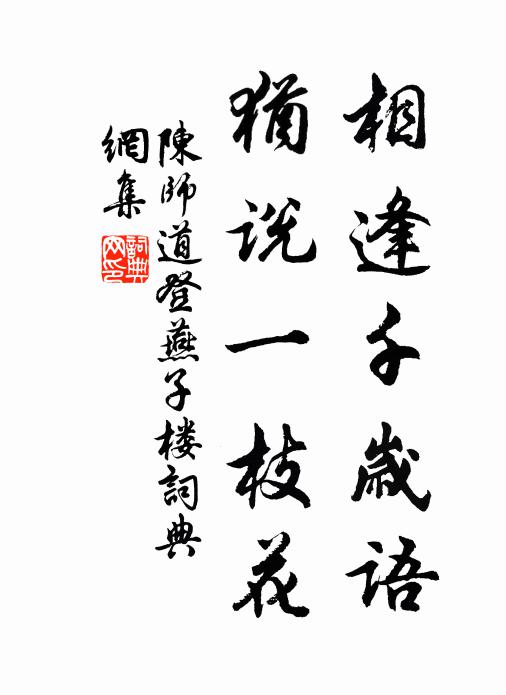 相逢千歲語
猶說一枝花
陳師道登燕子楼詞典
網集
詞典
网印